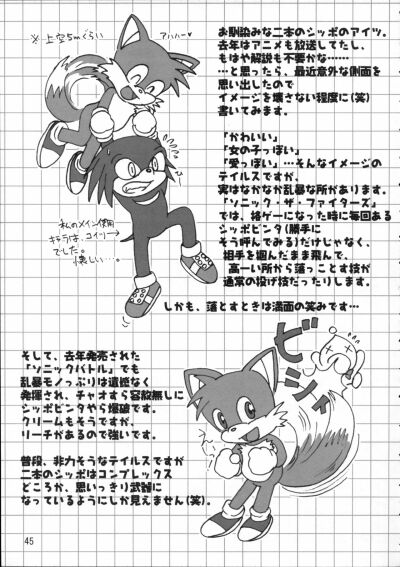 お馴染みな二本のシッポのアイツ。
去年はアニメも放送してたし、
もはや解説も不要かな……
…と思ったら、最近意外な側面を
思い出したので
イメージを壊さない程度に(笑)
書いてみます。
※上空5mぐらい
アハハー♥
「かわいい」
「女の子っぽい」
「愛っぽい」…そんなイメージの
テイルスですが、
実はなかなか乱暴な所があります。
「ソニック・ザ・ファイターズ」
では、格ゲーになった時に毎回ある
シッポビンタ(勝手に
そう呼んでみる)だけじゃなく、
相手を掴んだまま飛んで、
高ーい所から落っことす技が
通常の投げ技だったりします。
しかも、落とすときは満面の笑みです…
私のメイン使用
キャラは、コイツ→
でした。
懐しい…。
ビシャ
そして、去年発売された
「ソニックバトル」でも
乱暴モノっぷりは遺憾なく
発揮され、チャオすら容赦無しに
シッポビンタやら爆破です。
クリームもそうですが、
リーチがあるので強いです。
普段、非力そうなテイルスですが
二本のシッポはコンプレックス
どころか、思いっきり武器に
なっているようにしか見えません(笑)。
45